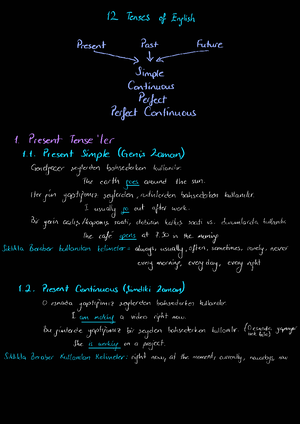 12 Tenses of English
Present Past Future
Simple
Continuous
Perfect
Perfect Continuous
1. Present Tense'ler
1.1. Present Simple (Geniş Zaman)
Genelgeçer şeylerden bahsederken kullanılır.
The earth goes around the sun.
Her gün yaptığımız şeylerden, rutinlerden bahsederken kullanılır.
I usually go out after work.
Bir yerin açılış, kapanış saati, otobüsün kalkış saati vb. durumlarda kullanılır
The café opens at 7.30 in the morning
Sıklıkla Beraber Kullanılan Kelimeler: always, usually, often, sometimes, rarely, never
every morning, every day, every night
1.2. Present Continuous (Şimdiki Zaman)
O esnada yaptığımız şeylerden bahsederken kullanılır
I am making a video right now.
Bu günlerde yaptığımız bir şeyden bahsederken kullanılır.
She is working on a project.
Sıklıkla Beraber Kullanılan Kelimeler: right now, at the moment, currently, nowadays